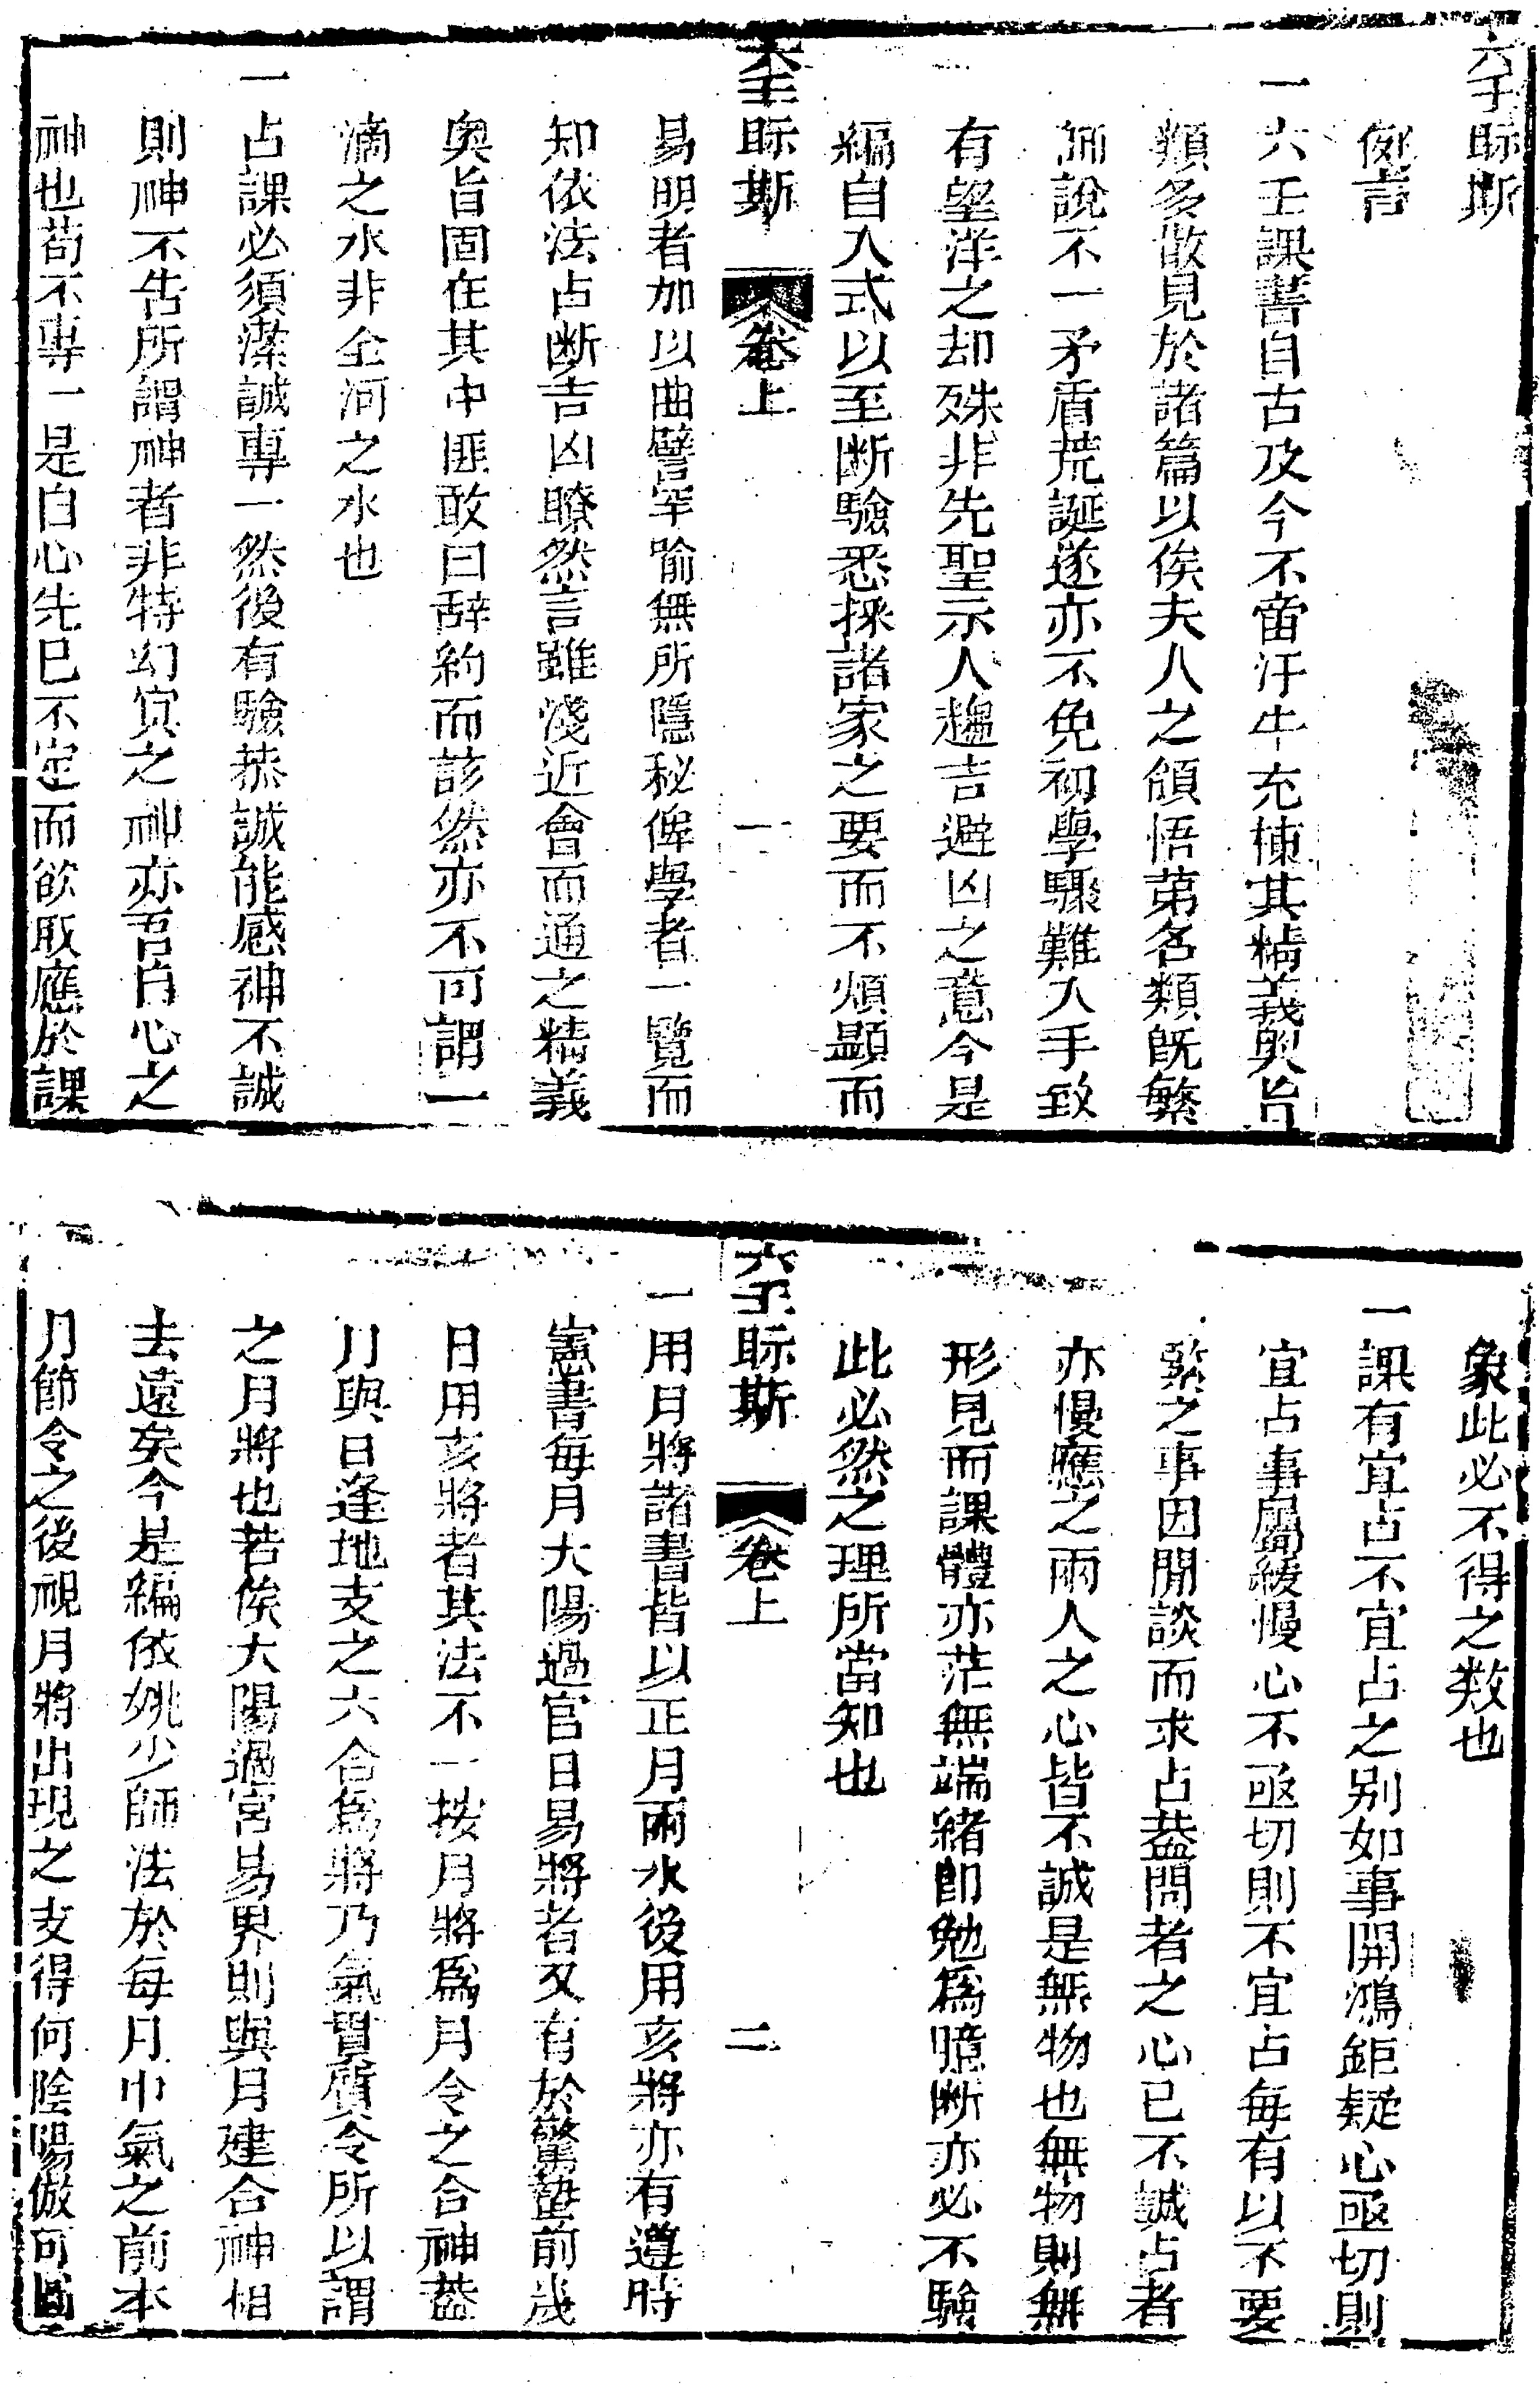 六壬眎斯
例言
一六壬課書自古及今不啻汗牛充棟其精義奧旨
類多散見於諸篇以俟夫人之領悟苐名類旣繁
師說不一矛盾荒誕遂亦不免初學驟難入手致
有望洋之却殊非先聖示人趨吉避凶之意今是
編自入式以至断驗悉採諸家之要而不煩顯而
六壬眎斯 卷上 一
易明者加以曲譬罕喻無所隱秘俾學者一覽而
知依法占断吉凶瞭然言雖淺近會而通之精義
奧旨固在其中匪敢曰辭約而該然亦不可謂一
滴之水非全河之水也
一占課必須潔誠專一然後有驗葢誠能感神不誠
則神不告所謂神者非特幻冥之神亦吾自心之
神也苟不專一是自心先已不定而欲取應於課
象此必不得之数也
一課有宜占不宜占之别如事開鴻鉅疑心亟切則
宜占事屬緩慢心不亟切則不宜占每有以不要
緊之事因閒談而求占葢問者之心已不誠占者
亦慢應之兩人之心皆不誠是無物也無物則無
形見而課體亦茫無端緒卽勉爲臆断亦必不驗
此必然之理所當知也
六壬眎斯 卷上 二
一用月將諸書皆以正月雨水後用亥將亦有遵時
憲書每月大陽過宫日易將者又有於驚蟄前幾
日用亥將者其法不一按月將爲月令之合神葢
月與日逢地支之六合爲將乃氣貫質令所以謂
之月將也若俟大陽過宮易界則與月建合神相
去遠矣今是編依姚少師法於每月中氣之前本
月節令之後視月將出現之支得何陰陽倣可圖